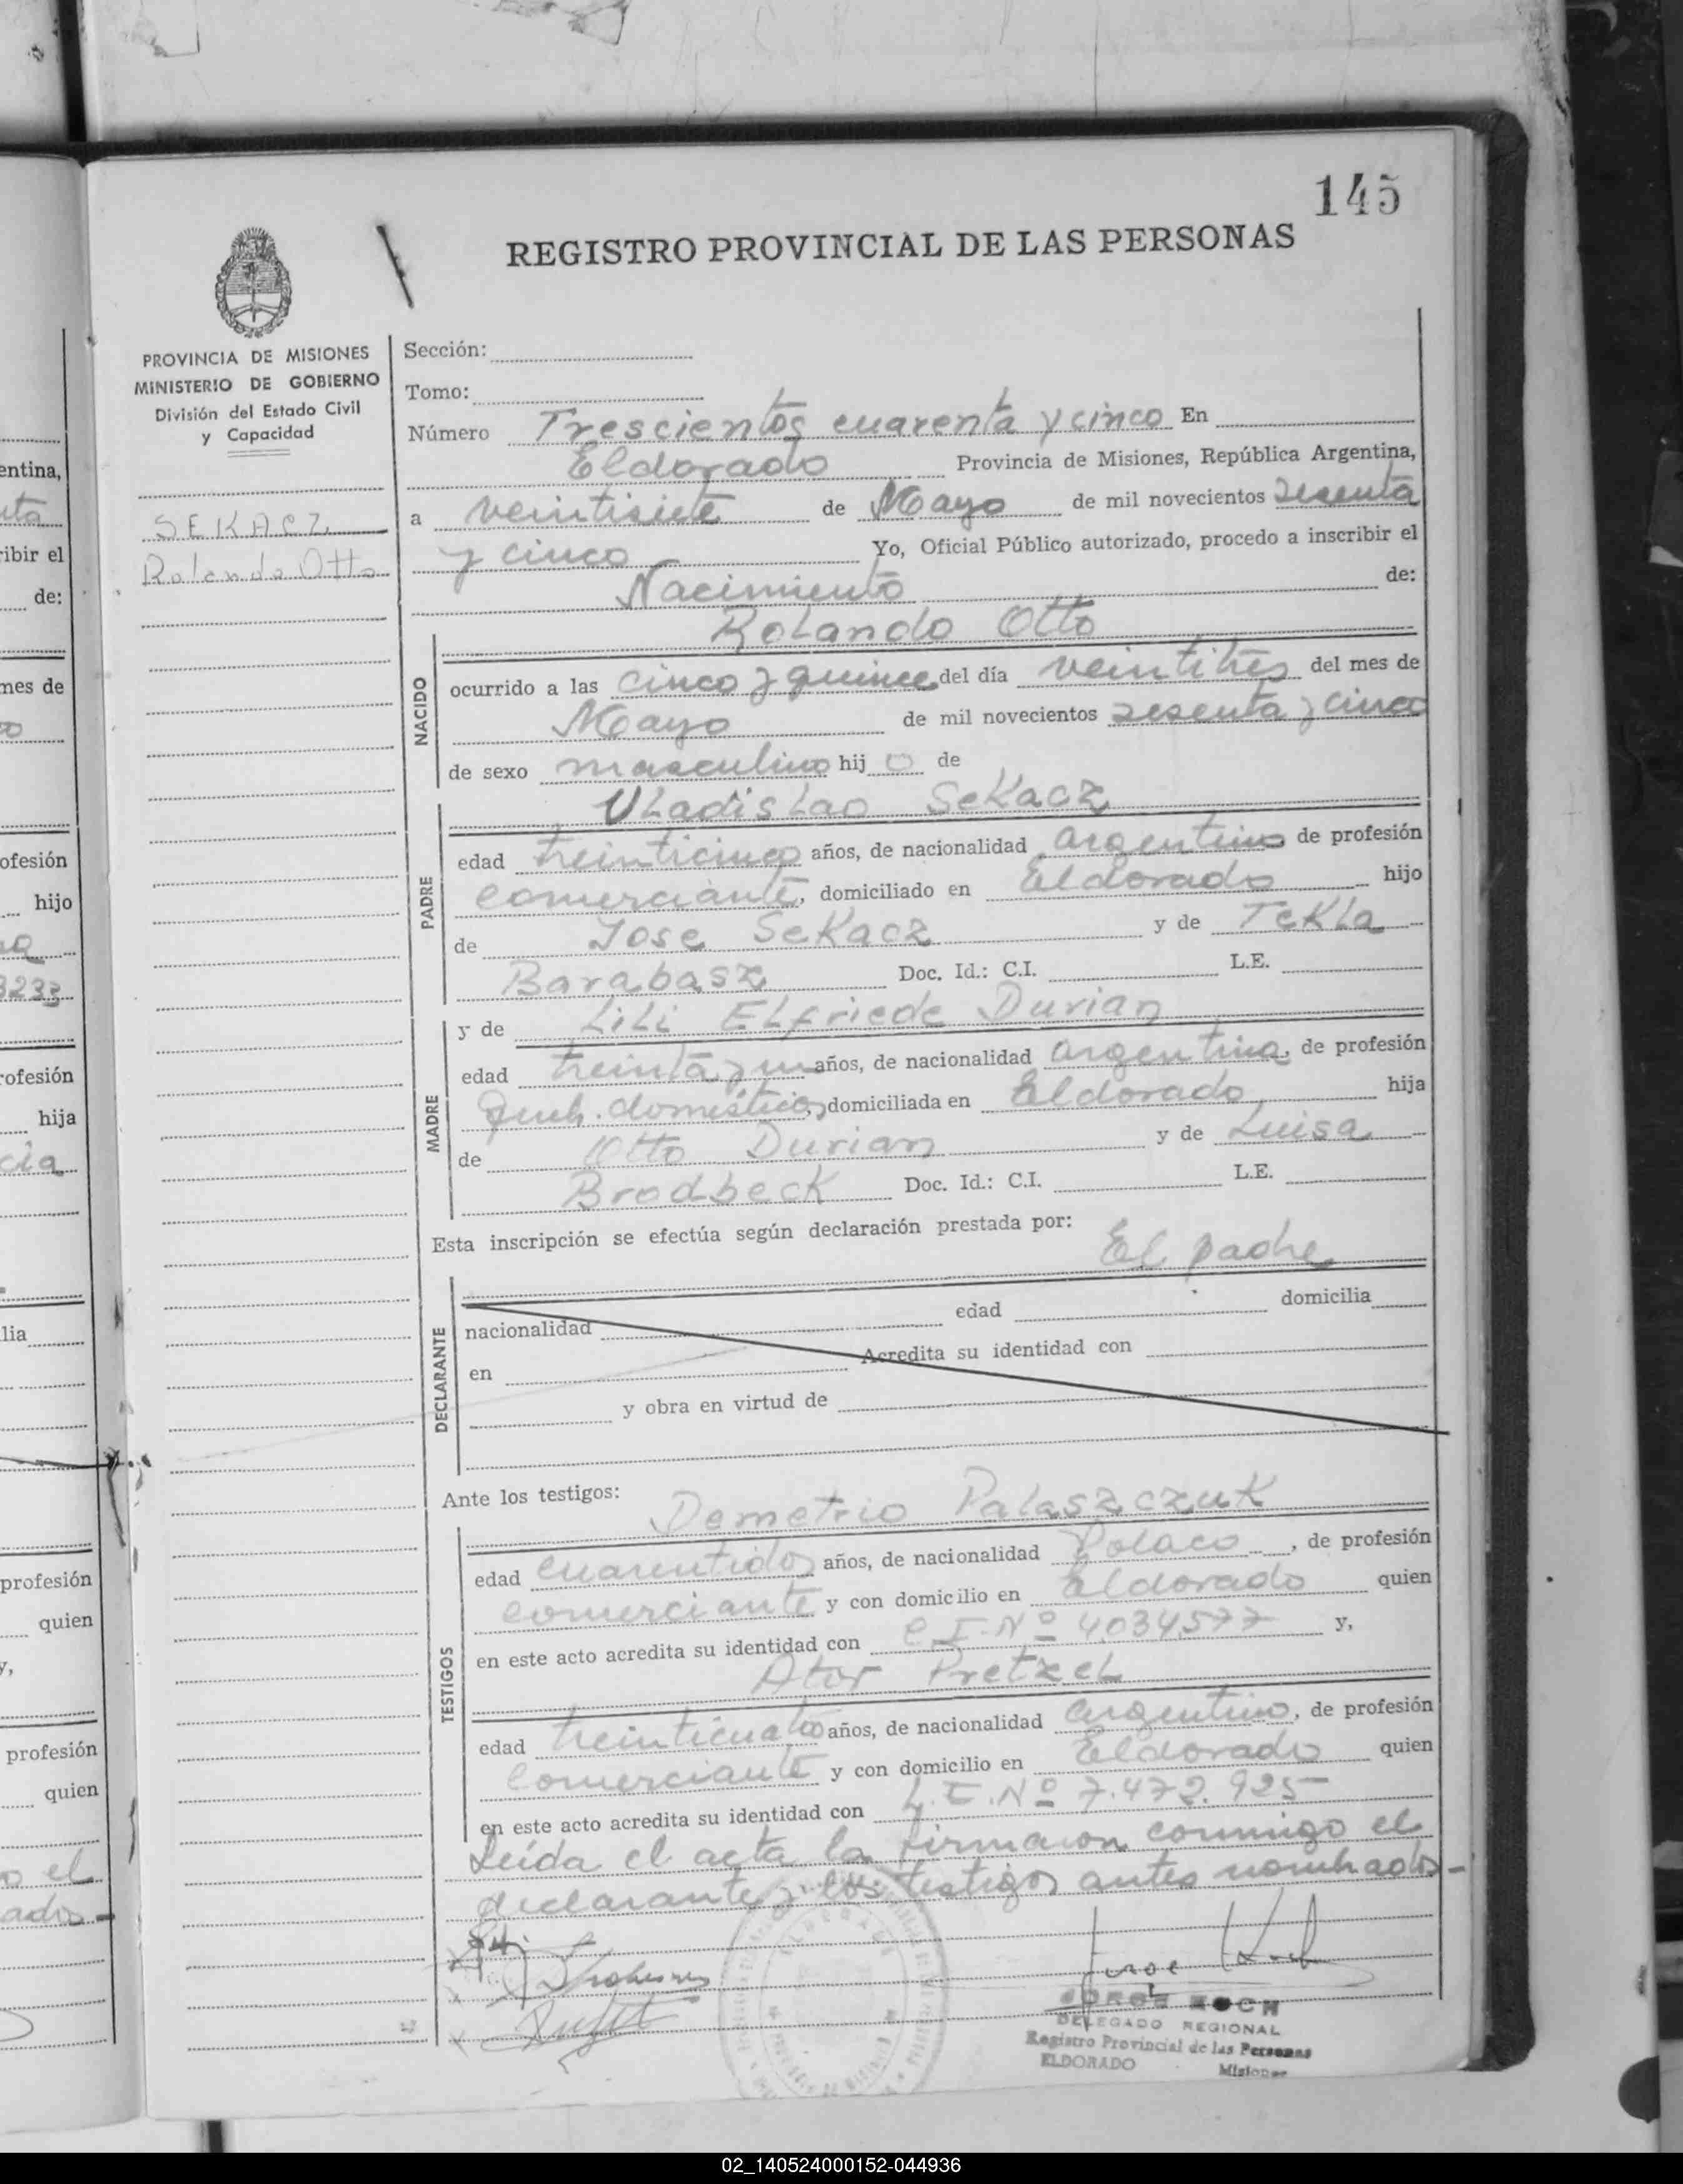 145
REGISTRO PROVINCIAL DE LAS PERSONAS
PROVINCIA DE MISIONES
MINISTERIO DE GOBIERNO
División del Estado Civil
y Capacidad
SEKACZ
Rolando Otto
Sección:
Tomo:
Número Trescientos cuarenta y cinco En
Eldorado Provincia de Misiones, República Argentina,
a veintisiete de Mayo de mil novecientos sesenta
y cinco Yo, Oficial Público autorizado, procedo a inscribir el
Nacimiento de:
Rolando Otto
NACIDO
ocurrido a las cinco y quince del día veintitres del mes de
Mayo de mil novecientos sesenta y cinco
de sexo masculino hij o de
Vladislao Sekacz
PADRE
edad treinticinco años, de nacionalidad argentino de profesión
comerciante, domiciliado en Eldorado hijo
de Jose Sekacz y de Tekla
Barabasz Doc. Id.: C.I. L.E.
y de Lili Elfriede Durian
MADRE
edad treinta y un años, de nacionalidad argentina, de profesión
queh. domésticos, domiciliada en Eldorado hija
de Otto Durian y de Luisa
Brodbeck Doc. Id.: C.I. L.E.
Esta inscripción se efectúa según declaración prestada por:
El padre
DECLARANTE
nacionalidad edad domicilia
en Acredita su identidad con
y obra en virtud de
Ante los testigos:
Demetrio Palaszczuk
TESTIGOS
edad cuarentidos años, de nacionalidad Polaco, de profesión
comerciante y con domicilio en Eldorado quien
en este acto acredita su identidad con C.I. Nº 4034577 y,
Ator Pretzel
edad treinticuatro años, de nacionalidad argentino, de profesión
comerciante y con domicilio en Eldorado quien
en este acto acredita su identidad con L.E. Nº 7.472.925
Leída el acta la firmaron conmigo el
declarante y los testigos antes nombrados-
JORGE KOCH
DELEGADO REGIONAL
Registro Provincial de las Personas
ELDORADO Misiones
entina,
ribir el
de:
mes de
ofesión
hijo
3233
rofesión
hija
cia
lia
profesión
quien
y,
profesión
quien
o el
ados-
02_140524000152-044936